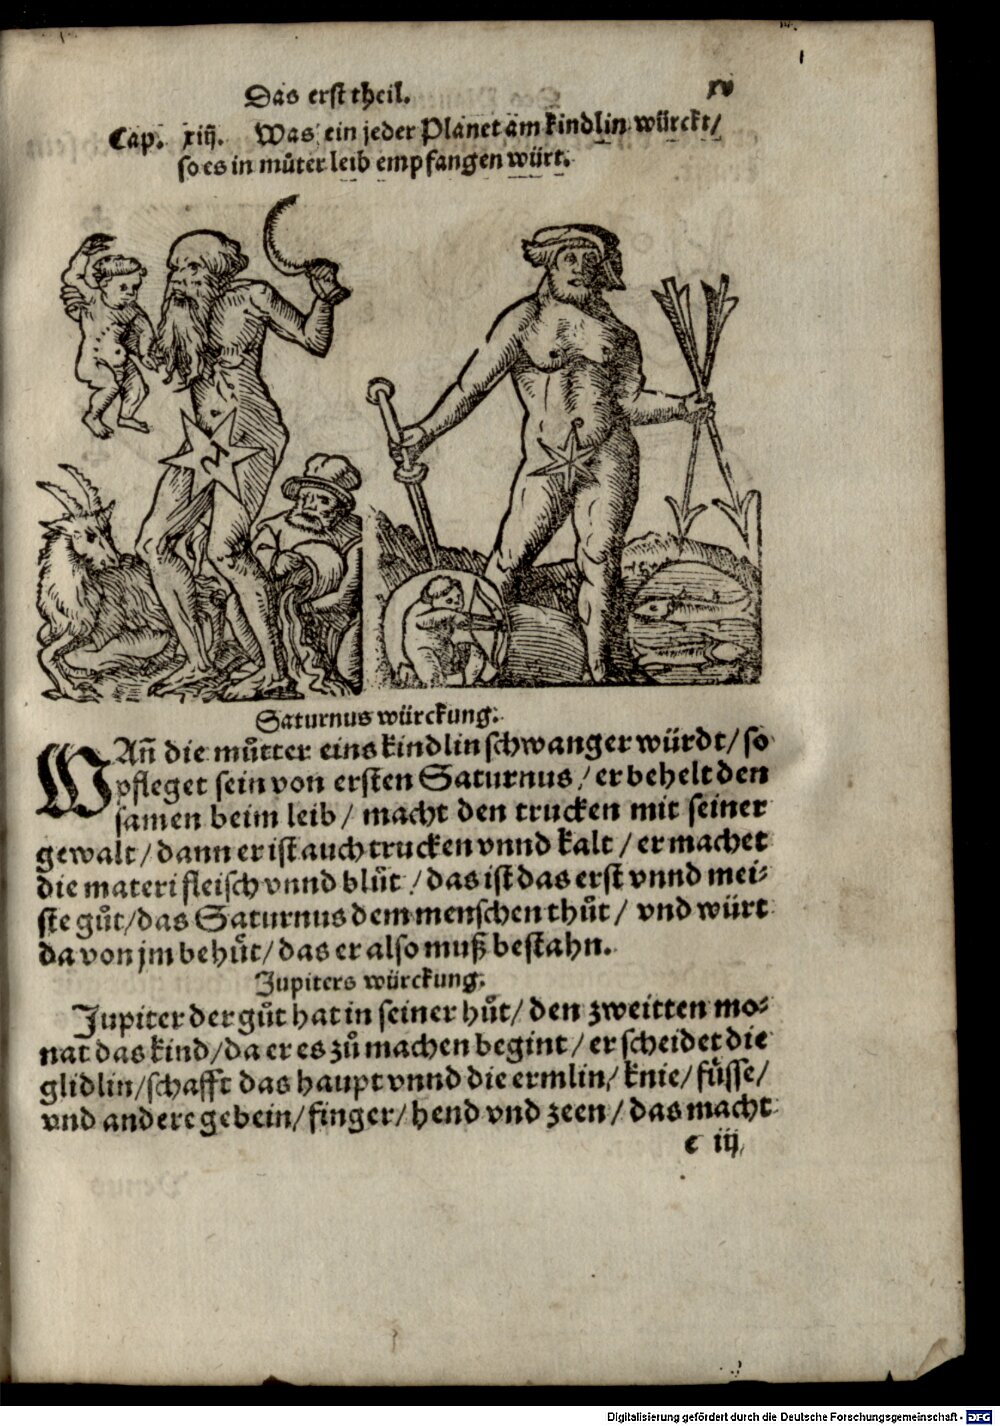 Das erst theil. xv
Cap. xiij. Was ein jeder Planet am kindlin würckt/
so es in můter leib empfangen würt.
Saturnus würckung.
WAn̄ die můtter eins kindlin schwanger würdt/ so
pfleget sein von ersten Saturnus/ er behelt den
samen beim leib/ macht den trucken mit seiner
gewalt/ dann er ist auch trucken vnnd kalt/ er machet
die materi fleisch vnnd blůt/ das ist das erst vnnd mei⸗
ste gůt/ das Saturnus dem menschen thůt/ vnd würt
da von jm behůt/ das er also muß bestahn.
Jupiters würckung.
Jupiter der gůt hat in seiner hůt/ den zweitten mo⸗
nat das kind/ da er es zů machen begint/ er scheidet die
glidlin/ schafft das haupt vnnd die ermlin/ knie/ füsse/
vnd andere gebein/ finger/ hend vnd zeen/ das macht
c iij
Digitalisierung gefördert durch die Deutsche Forschungsgemeinschaft - DFG